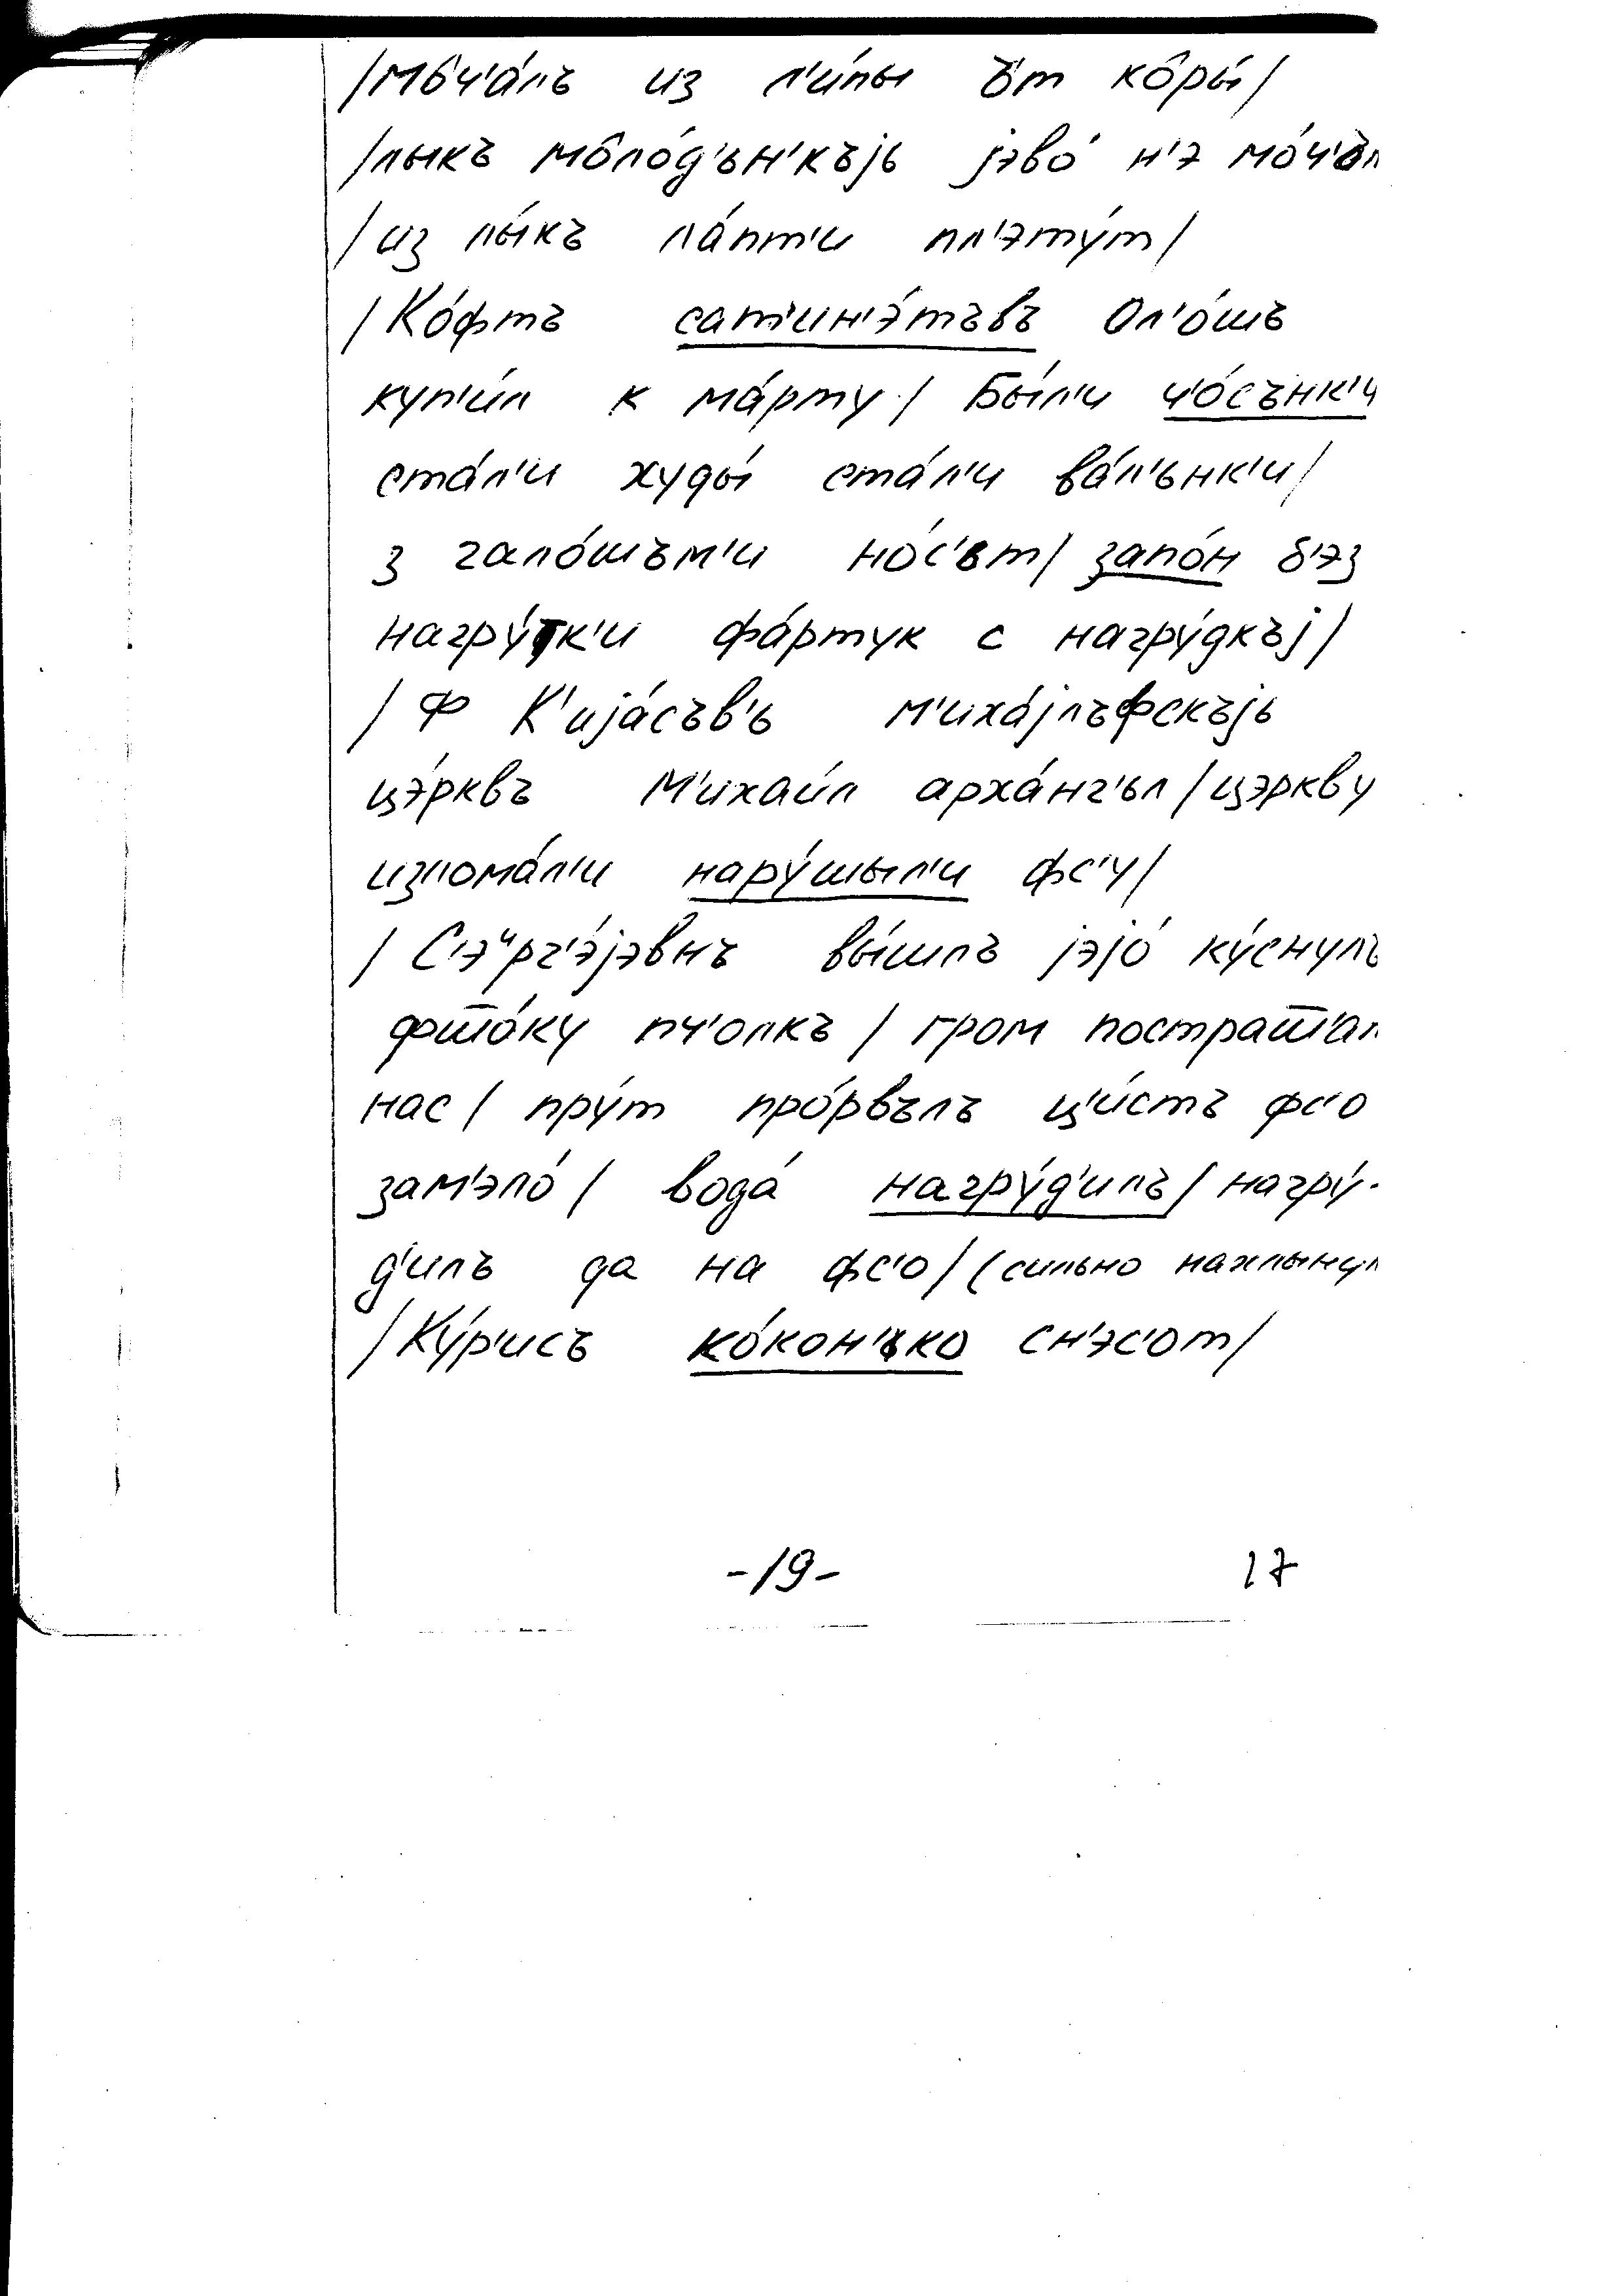 /мôч'а́лъ из л'и́пы ъ̂т кôры́/
/лыкъ мôло́д'ън'къjь jэво́ н'э мо́ч'ьл
/из лы́къ ла́пт'и пл'эту́т/
/Ко́фтъ сат'ин'э́тъвъ Ол'о́шъ
куп'и́л к ма́рту/ Бы́л'и ч'о́сънк'и
ста́л'и худы́ ста́л'и ва́л'ьнк'и/
з гало́шъм'и но́с'ьт/ запо́н б'эз
нагру́тк'и фа́ртук с нагру́дкъj/
/Ф К'иjа́съв'ь м'иха́jлъфскъjь
цэ́рквъ М'ихаи́л арха́нг'ьл/цэркву
излома́л'и нару́шыл'и фс'у/
/С'эᶣрг'э́jэвнъ вы́шлъ jэjо́ ку́снулъ
фт̅о́ку пч'олкъ/ гром пострат̅'ал
нас/ пру́т про́рвълъ ц'и́стъ фс'о
зам'эло́/ вода́ нагру́д'илъ/ нагру́-
д'илъ да на фс'о/(сильно нахлынул
/Ку́р'исъ ко́кон'ько сн'эс'от/
-19- 17